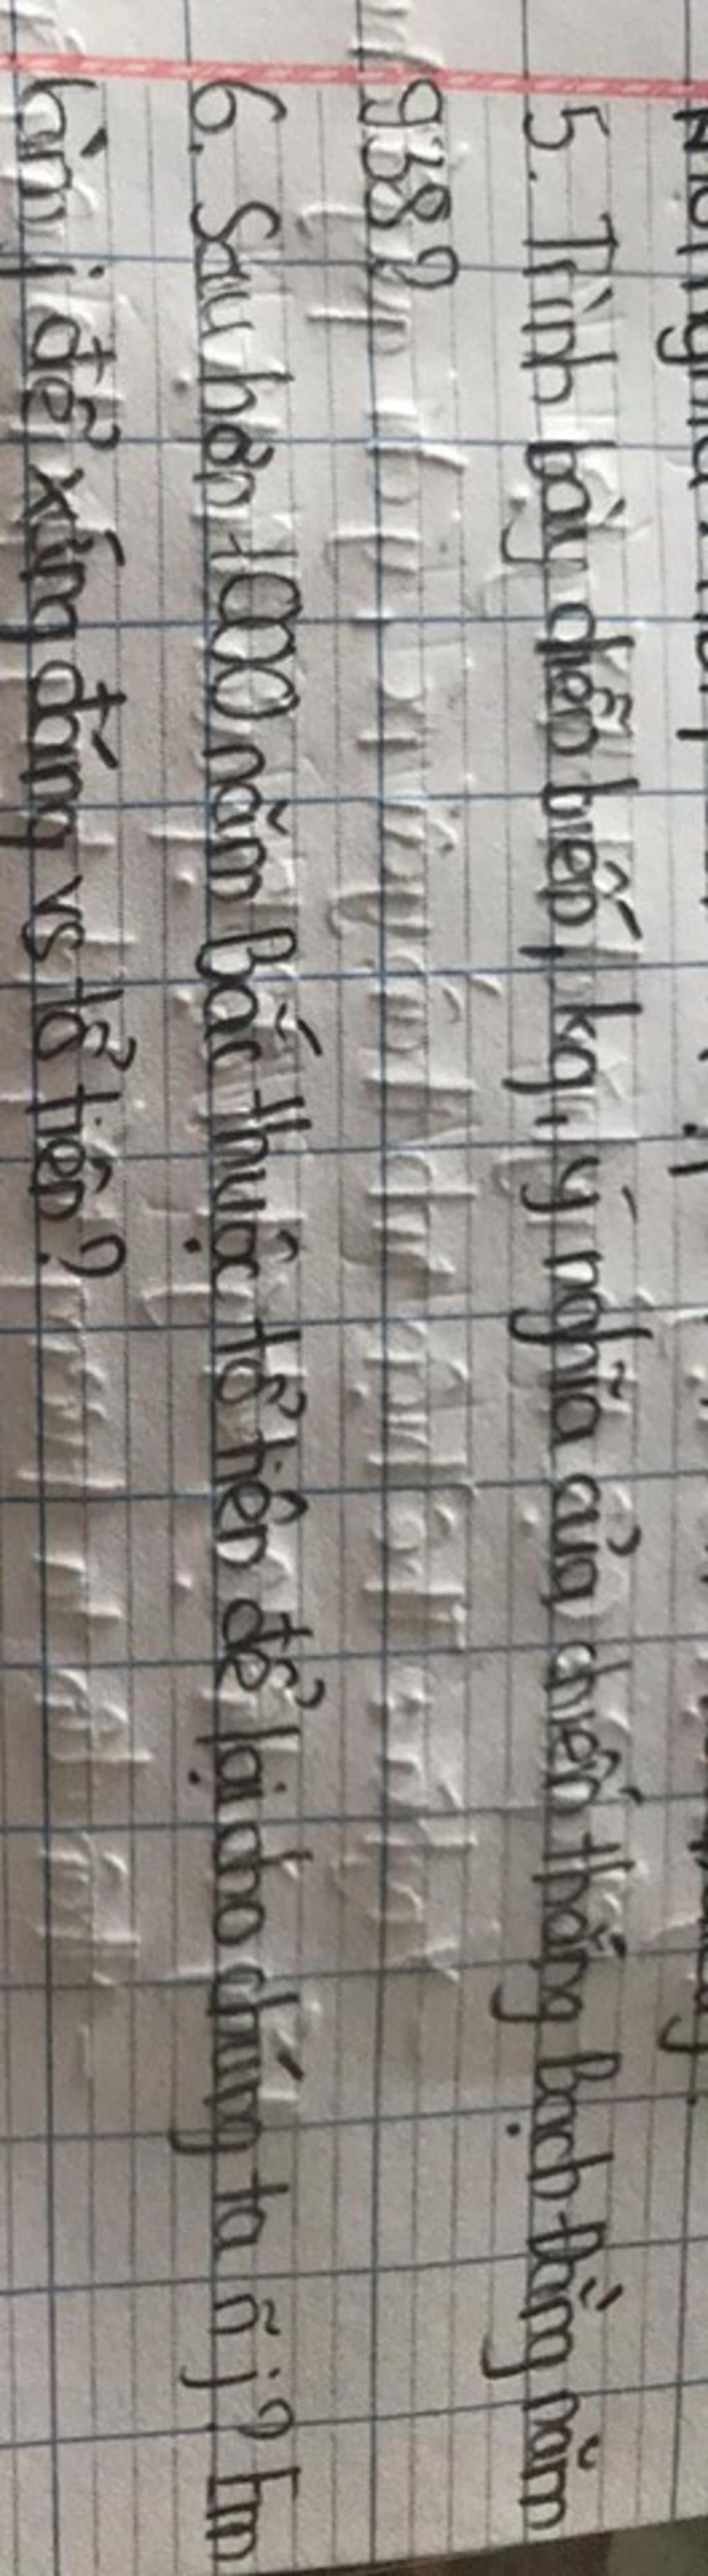 5. Trình bày diễn biến, kq, ý nghĩa của chiến thắng Bạch Đằng năm
938?
6. Sau hơn 1000 năm Bắc thuộc tổ tiên để lại cho chúng ta ~ j? Em
làm j để xứng đáng vs tổ tiên?